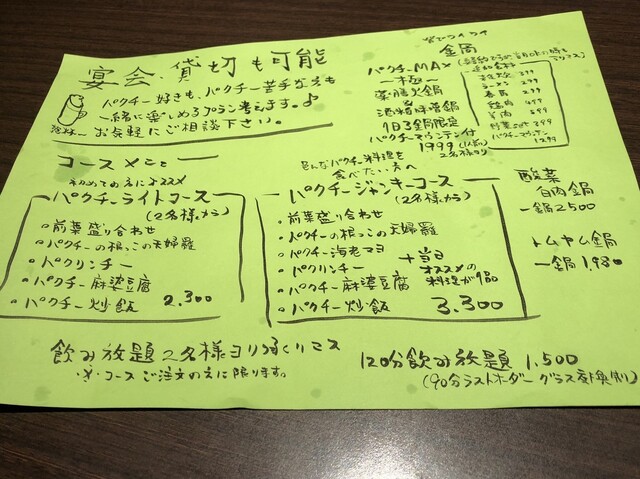 宴会・貸切も可能
パクチー好きも、パクチー苦手な人も
一緒に楽しめるプラン考えます。♪
お気軽にご相談下さい。
コースメニュー
初めての方にオススメ
パクチーライトコース
(2名様から)
・前菜盛り合わせ
・パクチーの根っこの天婦羅
・パクリンチー
・パクチー麻婆豆腐
・パクチー炒飯 2.300
色んなパクチー料理を
食べたい方へ
パクチージャンキーコース
(2名様から)
・前菜盛り合わせ
・パクチーの根っこの天婦羅
・パクチー海老マヨ
・パクリンチー
・パクチー麻婆豆腐
・パクチー炒飯 3.300
+当日
オススメの
料理が1品
皆でワイワイ
金局
パクチーMAX
ー極ー
薬膳火鍋
&
酒粕味噌鍋
1日3金局限定
パクチーマウンテン付
1999 (1人前)
2名様より
追加食材
ラーメン 299
春雨 299
鶏肉 499
羊肉 499
野菜set 399
パクチーマウンテン
1299
酸菜
白肉鍋
一鍋2500
トムヤム鍋
一鍋 1,980
飲み放題2名様ヨリ承リマス
・※・コースご注文の方に限ります。
120分飲み放題 1.500
(90分ラストオーダー グラス交換制)